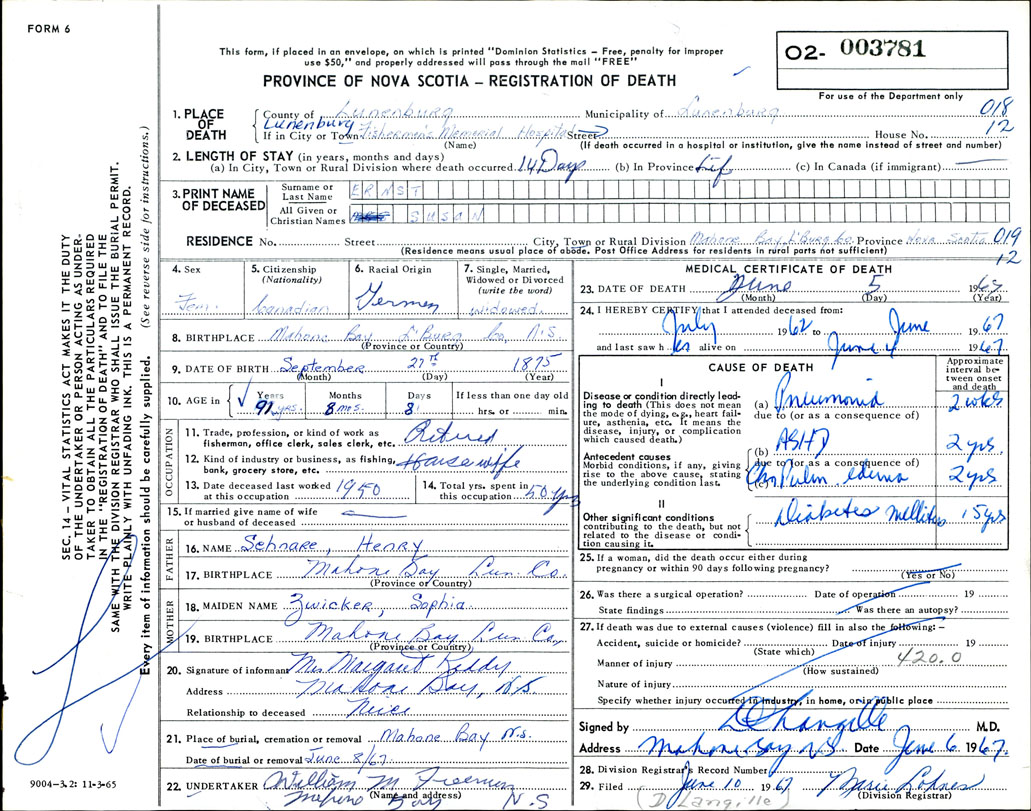 FORM 6
This form, if placed in an envelope, on which is printed "Dominion Statistics – Free, penalty for improper
use $50," and properly addressed will pass through the mail "FREE"
PROVINCE OF NOVA SCOTIA – REGISTRATION OF DEATH
O2- 003781
For use of the Department only
1. PLACE OF DEATH
County of Lunenburg Municipality of Lunenburg 018
Lunenburg 12
If in City or Town Fishermen's Memorial Hospital Street House No.
(Name) (If death occurred in a hospital or institution, give the name instead of street and number)
2. LENGTH OF STAY (in years, months and days)
(a) In City, Town or Rural Division where death occurred 14 Days (b) In Province Life (c) In Canada (if immigrant)
3. PRINT NAME OF DECEASED
Surname or Last Name ERNST
All Given or Christian Names SUSAN
RESIDENCE No. Street City, Town or Rural Division Mahone Bay L'Burg Co. Province Nova Scotia 019
(Residence means usual place of abode. Post Office Address for residents in rural parts not sufficient) 12
4. Sex Fem.
5. Citizenship (Nationality) Canadian
6. Racial Origin German
7. Single, Married, Widowed or Divorced (write the word) widowed
8. BIRTHPLACE Mahone Bay L'Burg Co, N.S.
(Province or Country)
9. DATE OF BIRTH September 27th 1875
(Month) (Day) (Year)
10. AGE in Years 91 yrs. Months 8 mos. Days 8 If less than one day old hrs. or min.
OCCUPATION
11. Trade, profession, or kind of work as fisherman, office clerk, sales clerk, etc. Retired
12. Kind of industry or business, as fishing, bank, grocery store, etc. Housewife
13. Date deceased last worked at this occupation 1950
14. Total yrs. spent in this occupation 50 yrs
15. If married give name of wife or husband of deceased
FATHER
16. NAME Schnare, Henry
17. BIRTHPLACE Mahone Bay Lun. Co.
(Province or Country)
MOTHER
18. MAIDEN NAME Zwicker, Sophia
19. BIRTHPLACE Mahone Bay Lun Co.
(Province or Country)
20. Signature of informant Mrs Margaret Keddy
Address Mahone Bay, N.S.
Relationship to deceased Niece
21. Place of burial, cremation or removal Mahone Bay N.S.
Date of burial or removal June 8/67
22. UNDERTAKER William M.
(Name and address) Mahone Bay N.S
MEDICAL CERTIFICATE OF DEATH
23. DATE OF DEATH June 5 1967
(Month) (Day) (Year)
24. I HEREBY CERTIFY that I attended deceased from:
July 1962 to June 1967
and last saw her alive on June 4 1967
CAUSE OF DEATH
Approximate interval between onset and death
I
Disease or condition directly leading to death (This does not mean the mode of dying, e.g., heart failure, asthenia, etc. It means the disease, injury, or complication which caused death.)
(a) Pneumonia 2 wks
due to (or as a consequence of)
Antecedent causes
Morbid conditions, if any, giving rise to the above cause, stating the underlying condition last.
(b) ASHD 2 yrs
due to (or as a consequence of)
(c) Chr Pulm. edema 2 yrs
II
Other significant conditions contributing to the death, but not related to the disease or condition causing it.
Diabetes mellitus 15 yrs
25. If a woman, did the death occur either during
pregnancy or within 90 days following pregnancy?
(Yes or No)
26. Was there a surgical operation? Date of operation 19
State findings Was there an autopsy?
27. If death was due to external causes (violence) fill in also the following: –
Accident, suicide or homicide? Date of injury 19
(State which) 420.0
Manner of injury
(How sustained)
Nature of injury
Specify whether injury occurred in industry, in home, or in public place
Signed by D Langille M.D.
Address Mahone Bay NS Date June 6 1967
28. Division Registrar's Record Number
29. Filed June 10 1967 Marie Lohnes
(D Langille) (Division Registrar)
SEC. 14 – VITAL STATISTICS ACT MAKES IT THE DUTY
OF THE UNDERTAKER OR PERSON ACTING AS UNDER-
TAKER TO OBTAIN ALL THE PARTICULARS REQUIRED
IN THE "REGISTRATION OF DEATH" AND TO FILE THE
SAME WITH THE DIVISION REGISTRAR WHO SHALL ISSUE THE BURIAL PERMIT.
WRITE PLAINLY WITH UNFADING INK. THIS IS A PERMANENT RECORD.
Every item of information should be carefully supplied. (See reverse side for instructions.)
9004–3.2: 11-3-65